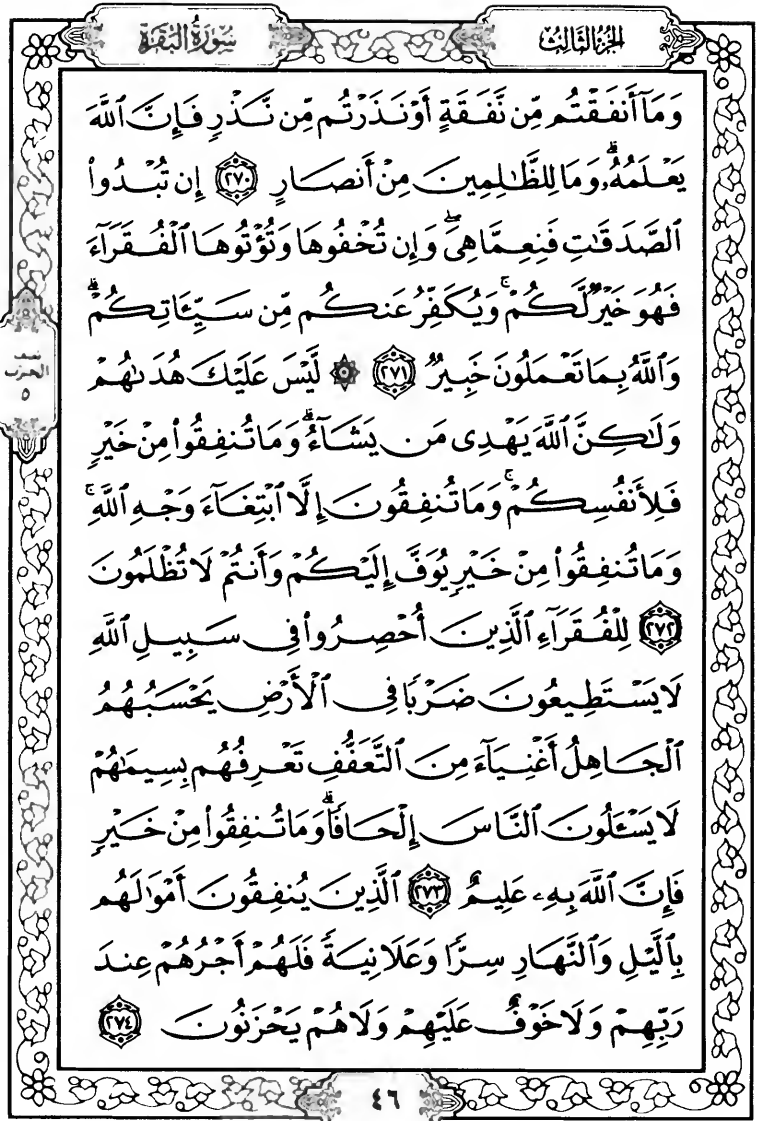 الجزء الثالث
سورة البقرة
وَمَآ أَنفَقْتُم مِّن نَّفَقَةٍ أَوْ نَذَرْتُم مِّن نَّذْرٍ فَإِنَّ ٱللَّهَ
يَعْلَمُهُۥۗ وَمَا لِلظَّٰلِمِينَ مِنْ أَنصَارٍ ٢٧٠ إِن تُبْدُوا۟
ٱلصَّدَقَٰتِ فَنِعِمَّا هِىَۖ وَإِن تُخْفُوهَا وَتُؤْتُوهَا ٱلْفُقَرَآءَ
فَهُوَ خَيْرٌ لَّكُمْۚ وَيُكَفِّرُ عَنكُم مِّن سَيِّـَٔاتِكُمْۗ
وَٱللَّهُ بِمَا تَعْمَلُونَ خَبِيرٌ ٢٧١ ۞ لَّيْسَ عَلَيْكَ هُدَىٰهُمْ
نصف
الحزب
٥
وَلَٰكِنَّ ٱللَّهَ يَهْدِى مَن يَشَآءُۗ وَمَا تُنفِقُوا۟ مِنْ خَيْرٍ
فَلِأَنفُسِكُمْۚ وَمَا تُنفِقُونَ إِلَّا ٱبْتِغَآءَ وَجْهِ ٱللَّهِۚ
وَمَا تُنفِقُوا۟ مِنْ خَيْرٍ يُوَفَّ إِلَيْكُمْ وَأَنتُمْ لَا تُظْلَمُونَ
٢٧٢ لِلْفُقَرَآءِ ٱلَّذِينَ أُحْصِرُوا۟ فِى سَبِيلِ ٱللَّهِ
لَا يَسْتَطِيعُونَ ضَرْبًا فِى ٱلْأَرْضِ يَحْسَبُهُمُ
ٱلْجَاهِلُ أَغْنِيَآءَ مِنَ ٱلتَّعَفُّفِ تَعْرِفُهُم بِسِيمَٰهُمْ
لَا يَسْـَٔلُونَ ٱلنَّاسَ إِلْحَافًاۗ وَمَا تُنفِقُوا۟ مِنْ خَيْرٍ
فَإِنَّ ٱللَّهَ بِهِۦ عَلِيمٌ ٢٧٣ ٱلَّذِينَ يُنفِقُونَ أَمْوَٰلَهُم
بِٱلَّيْلِ وَٱلنَّهَارِ سِرًّا وَعَلَانِيَةً فَلَهُمْ أَجْرُهُمْ عِندَ
رَبِّهِمْ وَلَا خَوْفٌ عَلَيْهِمْ وَلَا هُمْ يَحْزَنُونَ ٢٧٤
٤٦